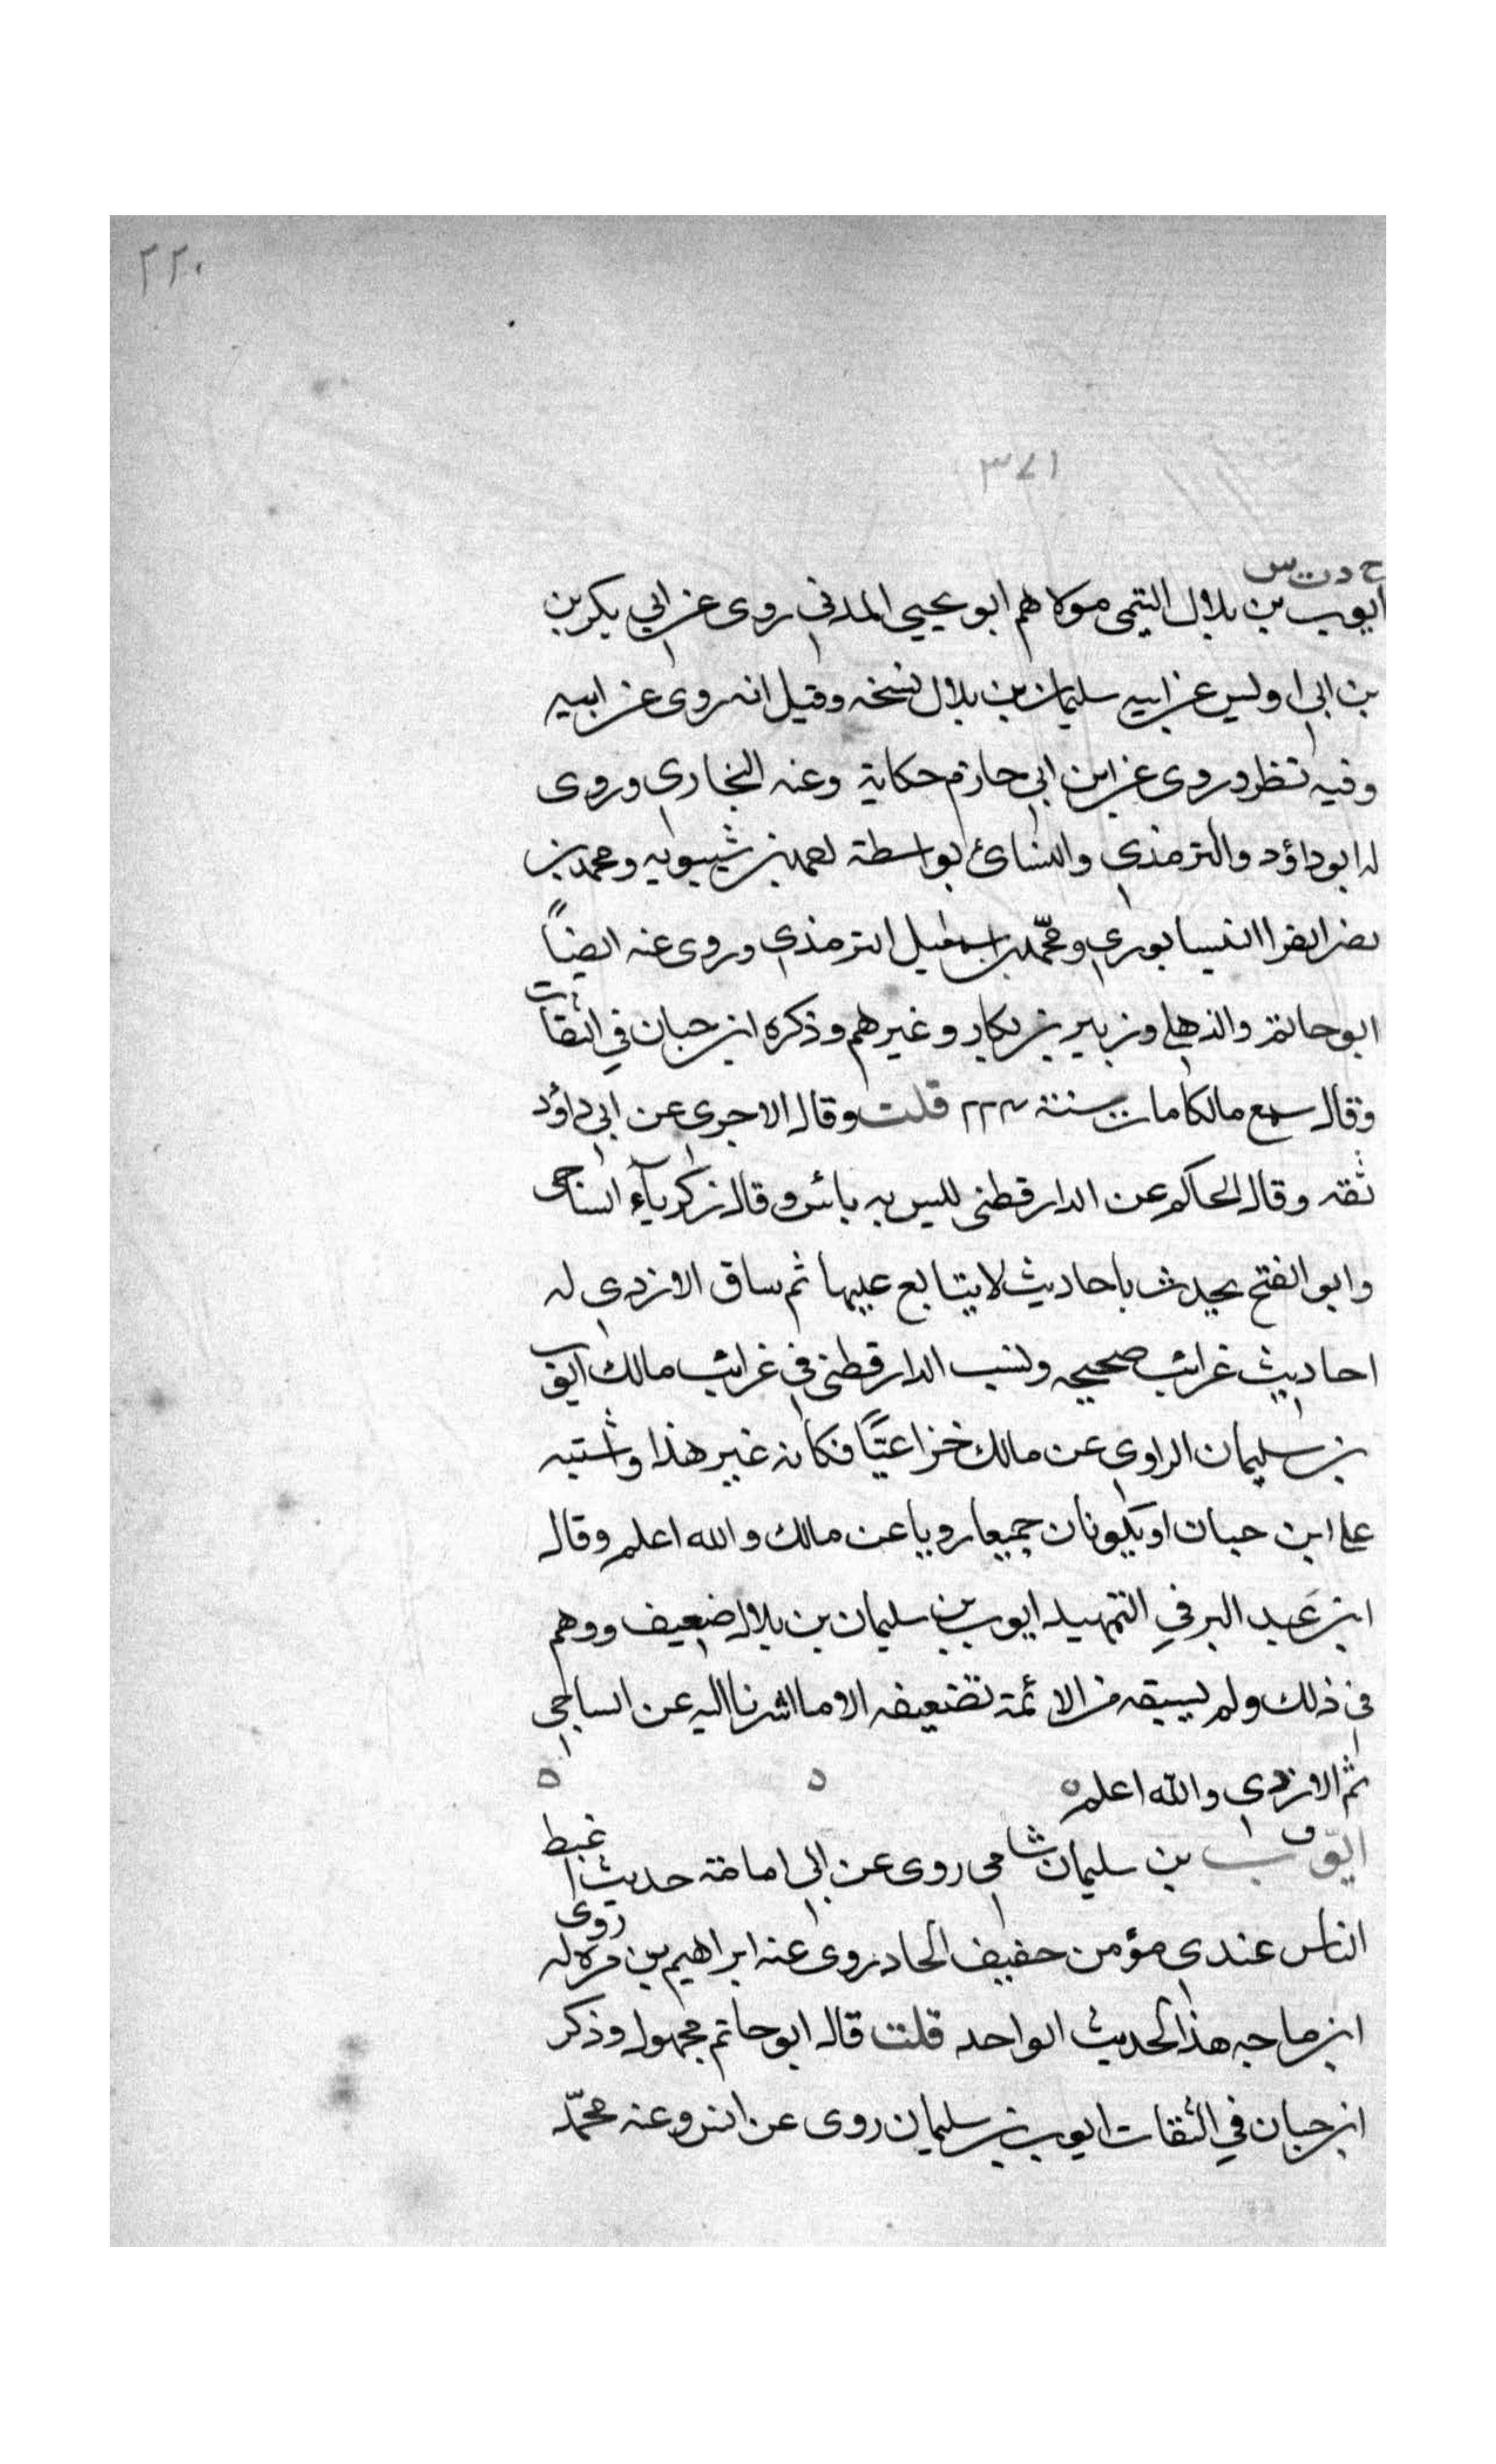 ٢٢٠
٣٧١
خ د ت س
ايوب بن بلال التيمى مولاهم ابو يحيى المدنى روى عن ابي بكر بن
بن ابى اويس عن ابيه سليمان بن بلال نسخه وقيل انه روى عن ابيه
وفيه نظر وروى عن ابن ابى حازم حكاية وعنه البخارى وروى
له ابو داؤد والترمذى والنسائ بواسطة احمد بن شيبويه ومحمد بن
نصر الفرا النيسابورى ومحمّد بن اسمعيل الترمذى وروى عنه ايضاً
ابو حاتم والذهلى وزبير بن بكار وغيرهم وذكره ابن حبان في الثقات
وقال سمع مالكا مات سنة ٢٢٤ قلت وقال الاجرى عن ابى داؤد
ثقه وقال الحاكم عن الدارقطنى ليس به بائس وقال زكرياء الساجى
وابو الفتح يحدث باحاديث لا يتابع عليها ثم ساق الازدى له
احاديث غرائب صحيحه ونسب الدارقطنى فى غرائب مالك ايوب
بن سليمان الراوى عن مالك خزاعيّاً فكانه غير هذا واشتبه
على ابن حبان او يكونان جميعا رويا عن مالك والله اعلم وقال
ابن عبد البر في التمهيد ايوب بن سليمان بن بلال ضعيف ووهم
فى ذلك ولم يسبقه من الائمة تضعيفه الا ما اشرنا اليه عن الساجى
ثم الازدى والله اعلم
ق
ايّوب بن سليمان شامى روى عن ابى امامة حديث اغبط
الناس عندى مؤمن حفيف الحاد روى عنه ابراهيم بن مرة روى له
ابن ماجه هذا الحديث الواحد قلت قال ابو حاتم مجهول وذكر
ابن حبان في الثقات ايوب بن سليمان روى عن انس وعنه محمّد